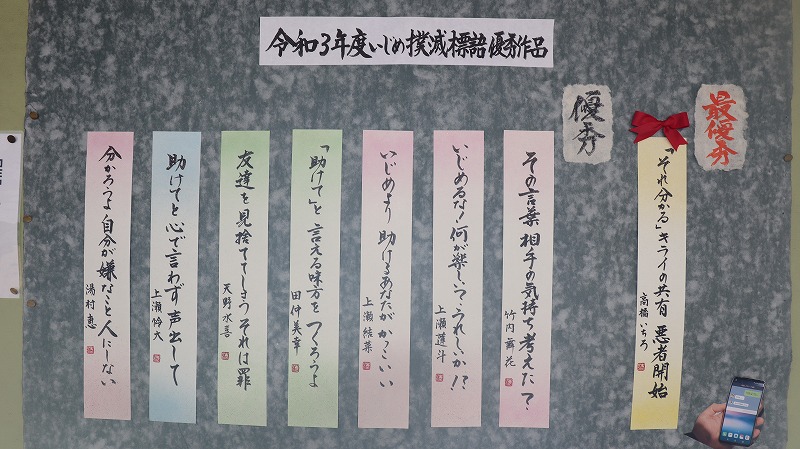 令和3年度いじめ撲滅標語優秀作品
最優秀
「それ分かる」キライの共有 悪者開始
高橋いちろ
優秀
その言葉 相手の気持ち考えた?
竹内舞花
いじめるな!何が楽しい?うれしいか!?
上瀬蓮斗
いじめより 助けるあなたが かっこいい
上瀬結菜
「助けて」と 言える味方を つくろうよ
田仲美幸
友達を見捨ててしまう それは罪
天野水喜
助けてと 心で言わず 声出して
上瀬怜大
分かろうよ 自分が嫌なこと 人にしない
湯村恵